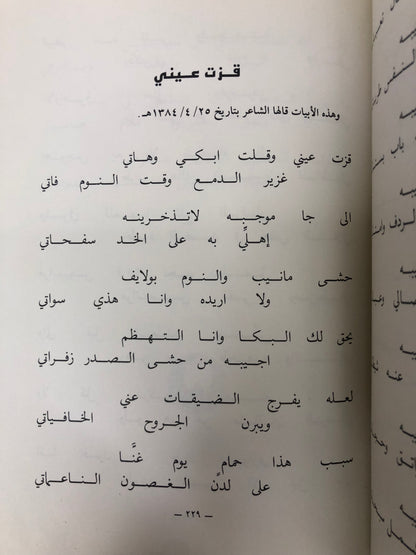 قزت عيني
وهذه الأبيات قالها الشاعر بتاريخ ٢٥/ ٤/ ١٣٨٤هـ.
قزت عيني وقلت ابكي وهاتي
غزير الدمع وقت النوم فاتي
الى جا موجبه لاتذخرينه
إهلِّي به على الخد سفحاتي
حشى مانيب والنوم بولايف
ولا اريده وانا هذي سواتي
يحق لك البكا وانا التهظم
اجيبه من حشى الصدر زفراتي
لعله يفرج الضيقات عني
ويبرن الجروح الخافياتي
سبب هذا حمام يوم غنَّا
على لدنٍ الغصون الناعماتي
— ٢٢٩ —